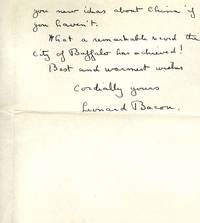 you new ideas about China if
you haven't.
What a remarkable record the
City of Buffalo has achieved!
Best and warmest wishes
Cordially yours
Leonard Bacon.